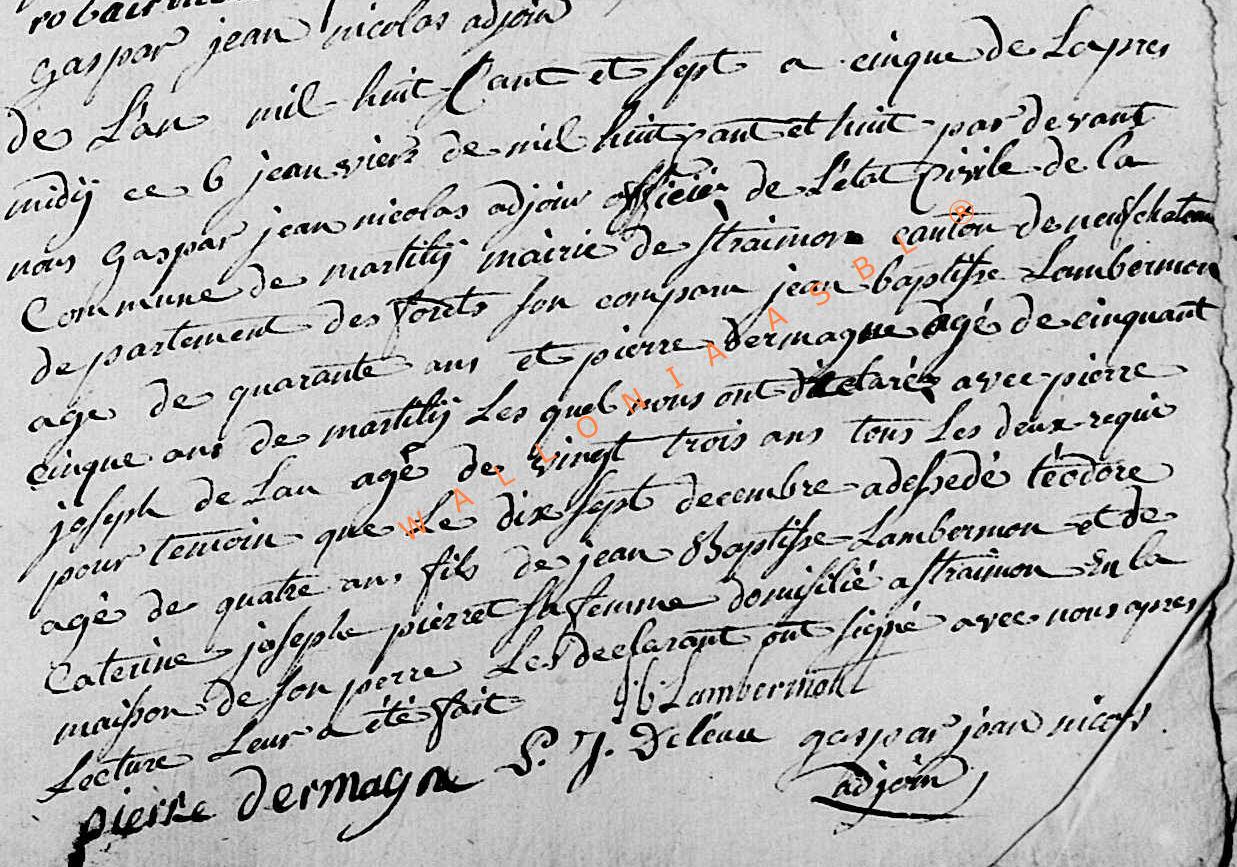 gaspar jean nicolas adjoin
de L'an mil huit Cant et sept a cinque de Lapres
midÿ ce 6 jeanvier de mil huit cant et huit par devant
nous gaspar jean nicolas adjoin officier de L'état Civile de la
Commune de martilÿ mairie de straimon canton de neufchateau
departement des forets son comparu jean baptisse Lambermon
age de quarante ans et pierre dermagne agé de cinquant
cinque ans de martilÿ Les quel nous ont déclaré avec pierre
joseph de Lau agé de vingt trois ans tous Les deux requi
pour temoin que Le dix sept decembre adessedé téodore
agé de quatre ans fils de jean Baptisse Lambermon et de
Caterine josephe pierret sa femme domisilié a straimon En la
maison de son perre Les declarant ont signé avec nous apres
Lecture Leur a été fait
jb Lambermont
pierre dermagne P. J. Deléau gaspar jean nicolas
adjoin
WALLONIA ASBL ®